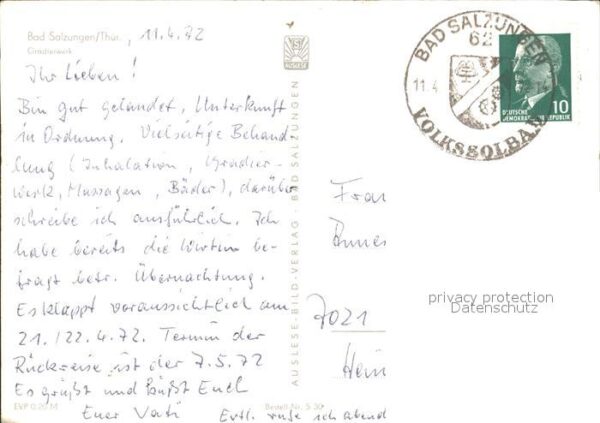 Bad Salzungen/Thür. , 11.4.72
Gradierwerk
Ihr Lieben!
Bin gut gelandet, Unterkunft
in Ordnung. Vielseitige Behand-
lung (Inhalation, Gradier-
werk, Massagen, Bäder), darüber
schreibe ich ausführlich. Ich
habe bereits die Wirtin be-
fragt betr. Übernachtung.
Es klappt voraussichtlich am
21./22.4.72. Termin der
Rückreise ist der 7.5.72
Es grüßt und küßt Euch
Euer Vati
Evtl. rufe ich abend
EVP 0.20 M
Bestell-Nr. S 30
AUSLESE-BILD-VERLAG · BAD SALZUNGEN
BAD SALZUNGEN
62
11.4
VOLKSSOLBAD
DEUTSCHE
DEMOKRATISCHE REPUBLIK
10
Frau
7021
privacy protection
Datenschutz